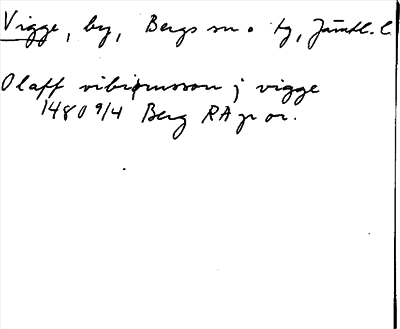 Vigge, by, Bergs sn o tg, Jämtl. l.
Olaff vibiørnsson j vigge
1480 9/4 Berg RA pr or.